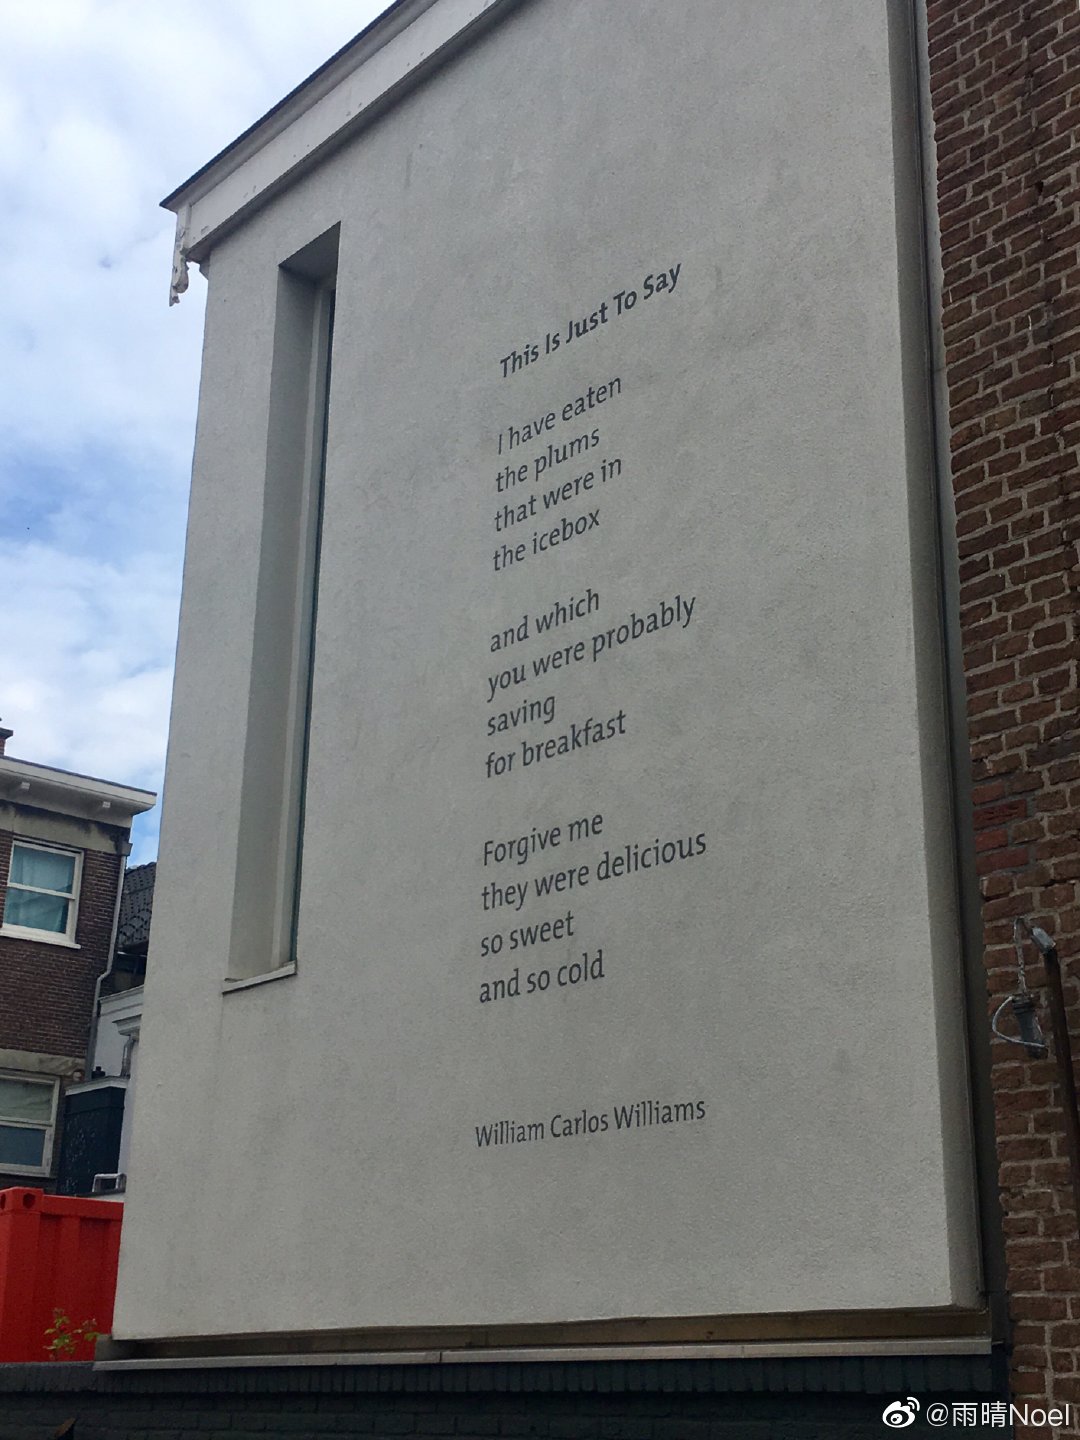 This Is Just To Say
I have eaten
the plums
that were in
the icebox
and which
you were probably
saving
for breakfast
Forgive me
they were delicious
so sweet
and so cold
William Carlos Williams
@雨晴Noel